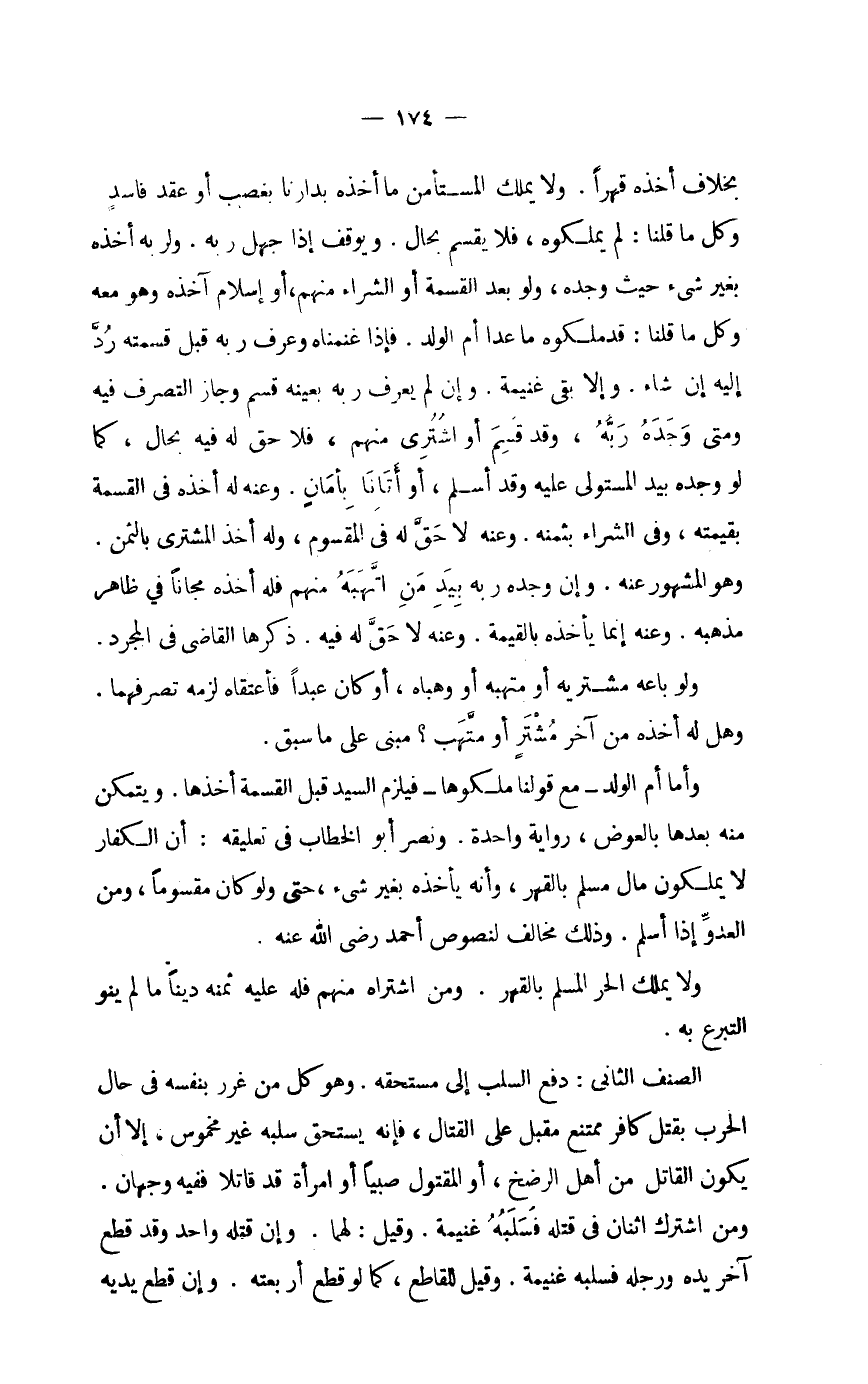 — ١٧٤ —
بخلاف أخذه قهراً . ولا يملك المستأمن ما أخذه بدارنا بغصب أو عقد فاسدٍ
وكل ما قلنا : لم يملكوه ، فلا يقسم بحال . ويوقف إذا جهل ربه . ولربه أخذه
بغير شىء حيث وجده ، ولو بعد القسمة أو الشراء منهم،أو إسلام آخذه وهو معه
وكل ما قلنا : قد ملكوه ما عدا أم الولد . فإذا غنمناه وعرف ربه قبل قسمته رُدَّ
إليه إن شاء . وإلا بقى غنيمة . وإن لم يعرف ربه بعينه قسم وجاز التصرف فيه
ومتى وَجَدَهُ رَبَّهُ ، وقد قُسِمَ أو اشْتُرِى منهم ، فلا حق له فيه بحال ، كما
لو وجده بيد المستولى عليه وقد أسلم ، أو أَتَانَا بِأَمَانٍ . وعنه له أخذه فى القسمة
بقيمته ، وفى الشراء بثمنه . وعنه لا حَقَّ له فى المقسوم ، وله أخذ المشترى بالثمن .
وهو المشهور عنه . وإن وجده ربه بِيَدِ مَنِ اتَّهَبَهُ منهم فله أخذه مجاناً في ظاهر
مذهبه . وعنه إنما يأخذه بالقيمة . وعنه لا حَقَّ له فيه . ذكرها القاضى فى المجرد .
ولو باعه مشتريه أو متهبه أو وهباه ، أو كان عبداً فأعتقاه لزمه تصرفهما .
وهل له أخذه من آخر مُشْتَرٍ أو متَّهَب ؟ مبنى على ما سبق .
وأما أم الولد ــ مع قولنا ملكوها ــ فيلزم السيد قبل القسمة أخذها . ويتمكن
منه بعدها بالعوض ، رواية واحدة . ونصر أبو الخطاب فى تعليقه : أن الكفار
لا يملكون مال مسلم بالقهر ، وأنه يأخذه بغير شىء ،حتى ولو كان مقسوماً ، ومن
العدوِّ إذا أسلم . وذلك مخالف لنصوص أحمد رضى الله عنه .
ولا يملك الحر المسلم بالقهر . ومن اشتراه منهم فله عليه ثمنه ديناً ما لم ينو
التبرع به .
الصنف الثانى : دفع السلب إلى مستحقه . وهو كل من غرر بنفسه فى حال
الحرب بقتل كافر ممتنع مقبل على القتال ، فإنه يستحق سلبه غير مخموس ، إلا أن
يكون القاتل من أهل الرضخ ، أو المقتول صبياً أو امرأة قد قاتلا ففيه وجهان .
ومن اشترك اثنان فى قتله فَسَلَبُهُ غنيمة . وقيل : لهما . وإن قتله واحد وقد قطع
آخر يده ورجله فسلبه غنيمة . وقيل للقاطع ، كما لو قطع أربعته . وإن قطع يديه